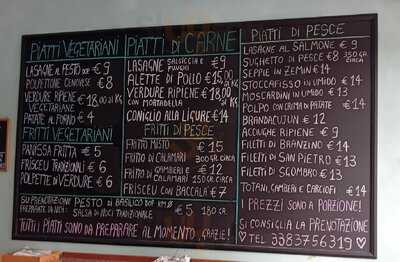 PIATTI VEGETARIANI
LASAGNE AL PESTO DOP € 9
POLPETTONE GENOVESE € 8
VERDURE RIPIENE € 18,00 al KG
VEGETARIANE
PATATE AL FORNO € 4
FRITTI VEGETARIANI
PANISSA FRITTA € 5
FRISCEU TRADIZIONALI € 6
POLPETTE DI VERDURE € 6
PIATTI DI CARNE
LASAGNE SALSICCIA E FUNGHI € 9
ALETTE DI POLLO € 15,00 al KG
VERDURE RIPIENE € 18,00 al KG
CON MORTADELLA
CONIGLIO ALLA LIGURE € 14
FRITTI DI PESCE
FRITTO MISTO € 15
FRITTO DI CALAMARI 300 GR. CIRCA
FRITTO DI GAMBERI E € 12
CALAMARI 150 GR. CIRCA
FRISCEU CON BACCALÀ € 7
PIATTI DI PESCE
LASAGNE AL SALMONE € 9
SUGHETTO DI PESCE € 8 350 GR. CIRCA
SEPPIE IN ZEMIN € 14
STOCCAFISSO IN UMIDO € 14
MOSCARDINI IN UMIDO € 13
POLPO CON CREMA DI PATATE € 14
BRANDACUJUN € 12
ACCIUGHE RIPIENE € 9
FILETTI DI BRANZINO € 14
FILETTI DI SAN PIETRO € 13
FILETTI DI SGOMBRO € 13
TOTANI, GAMBERI E CARCIOFI € 14
I PREZZI SONO A PORZIONE!
SI CONSIGLIA LA PRENOTAZIONE
♡ TEL 3383756319 ♡
SU PRENOTAZIONE PESTO DI BASILICO DOP KM 0
PREPARATE DA NOI: SALSA DI NOCI TRADIZIONALE € 5 180 GR.
TUTTI I PIATTI SONO DA PREPARARE AL MOMENTO GRAZIE!